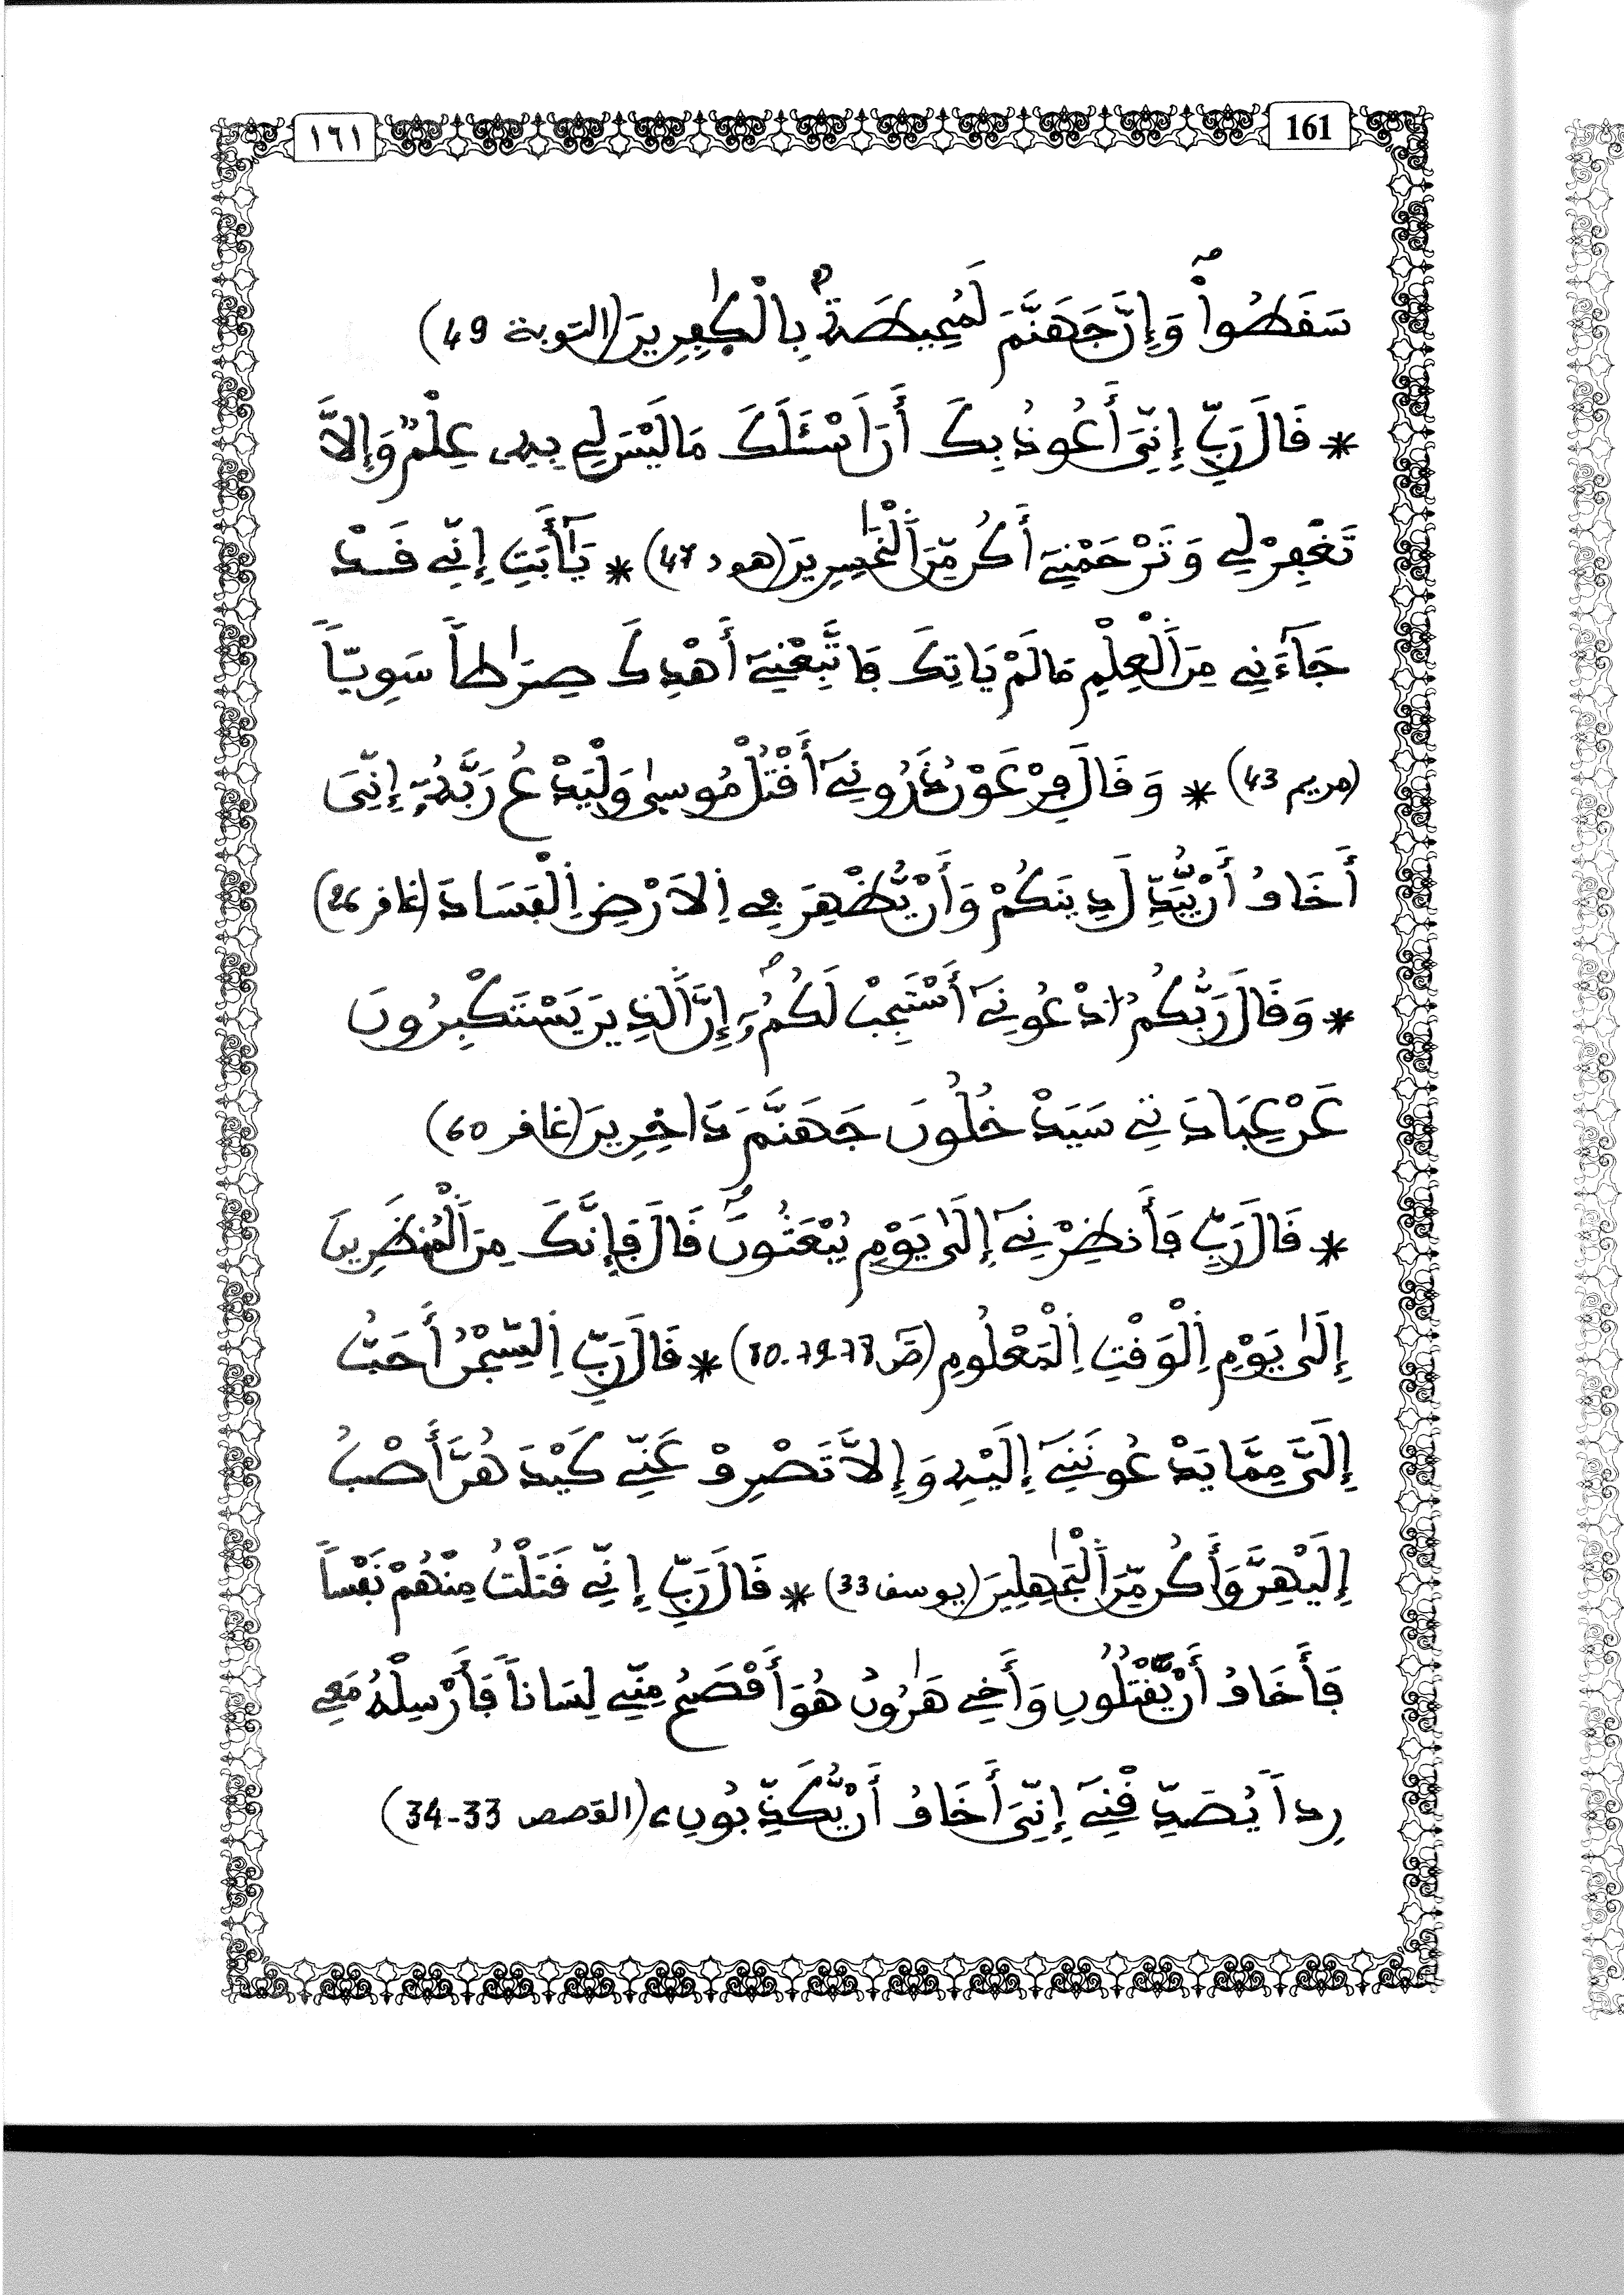 ١٦١ 161
سَقَطُواْ وَإِنَّ جَهَنَّمَ لَمُحِيطَةٌ بِالْكٰفِرِينَ (التوبة 49)
* قَالَ رَبِّ إِنِّيَ أَعُوذُ بِكَ أَنَ اَسْـَٔلَكَ مَا لَيْسَ لِي بِهِۦ عِلْمٌ وَإِلاَّ
تَغْفِرْ لِي وَتَرْحَمْنِيَ أَكُن مِّنَ اَلْخٰسِرِينَ (هود 47) * يَٰٓأَبَتِ إِنِّي قَدْ
جَآءَنِي مِنَ اَلْعِلْمِ مَا لَمْ يَاتِكَ فَاتَّبِعْنِيَ أَهْدِكَ صِرَٰطاً سَوِيّاً
(مريم 43) * وَقَالَ فِرْعَوْنُ ذَرُونِيَ أَقْتُلْ مُوسىٰ وَلْيَدْعُ رَبَّهُۥٓ إِنِّيَ
أَخَافُ أَنْ يُّبَدِّلَ دِينَكُمْ وَأَنْ يُّظْهِرَ فِي اِلاَرْضِ اِلْفَسَادَ (غافر 26)
* وَقَالَ رَبُّكُمُ اُدْعُونِيَ أَسْتَجِبْ لَكُمُۥٓ إِنَّ اَلذِينَ يَسْتَكْبِرُونَ
عَنْ عِبَادَتِي سَيَدْخُلُونَ جَهَنَّمَ دَاخِرِينَ (غافر 60)
* قَالَ رَبِّ فَأَنظِرْنِيَ إِلَىٰ يَوْمِ يُبْعَثُونَ قَالَ فَإِنَّكَ مِنَ اَلْمُنظَرِينَ
إِلَىٰ يَوْمِ اِلْوَقْتِ اِلْمَعْلُومِ (صٓ 78-79-80) * قَالَ رَبِّ اِلسِّجْنُ أَحَبُّ
إِلَيَّ مِمَّا يَدْعُونَنِيَ إِلَيْهِ وَإِلاَّ تَصْرِفْ عَنِّي كَيْدَهُنَّ أَصْبُ
إِلَيْهِنَّ وَأَكُن مِّنَ اَلْجٰهِلِينَ (يوسف 33) * قَالَ رَبِّ إِنِّي قَتَلْتُ مِنْهُمْ نَفْساً
فَأَخَافُ أَنْ يَّقْتُلُونِ وَأَخِي هَٰرُونُ هُوَ أَفْصَحُ مِنِّي لِسَاناً فَأَرْسِلْهُ مَعِي
رِداً يُصَدِّقْنِيَ إِنِّيَ أَخَافُ أَنْ يُّكَذِّبُونِۦ (القصص 33-34)